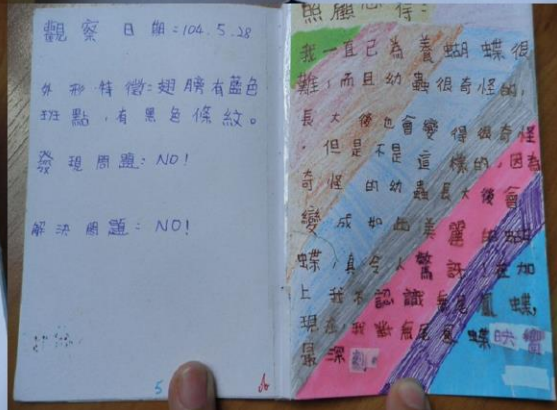 觀察日期:104.5.28
外形特徵:翅膀有藍色
班點,有黑色條紋。
發現問題:NO!
解決問題:NO!
5
照顧心得:
我一直已為養蝴蝶很
難,而且幼蟲很奇怪的,
長大後也會變得很奇怪
,但是不是這樣的,因為
奇怪的幼蟲長大後會
變成如此美麗的蝴
蝶,真令人驚訝!在加
上我不認識無尾鳳蝶,
現在,我對無尾鳳蝶映像
最深刻。
6